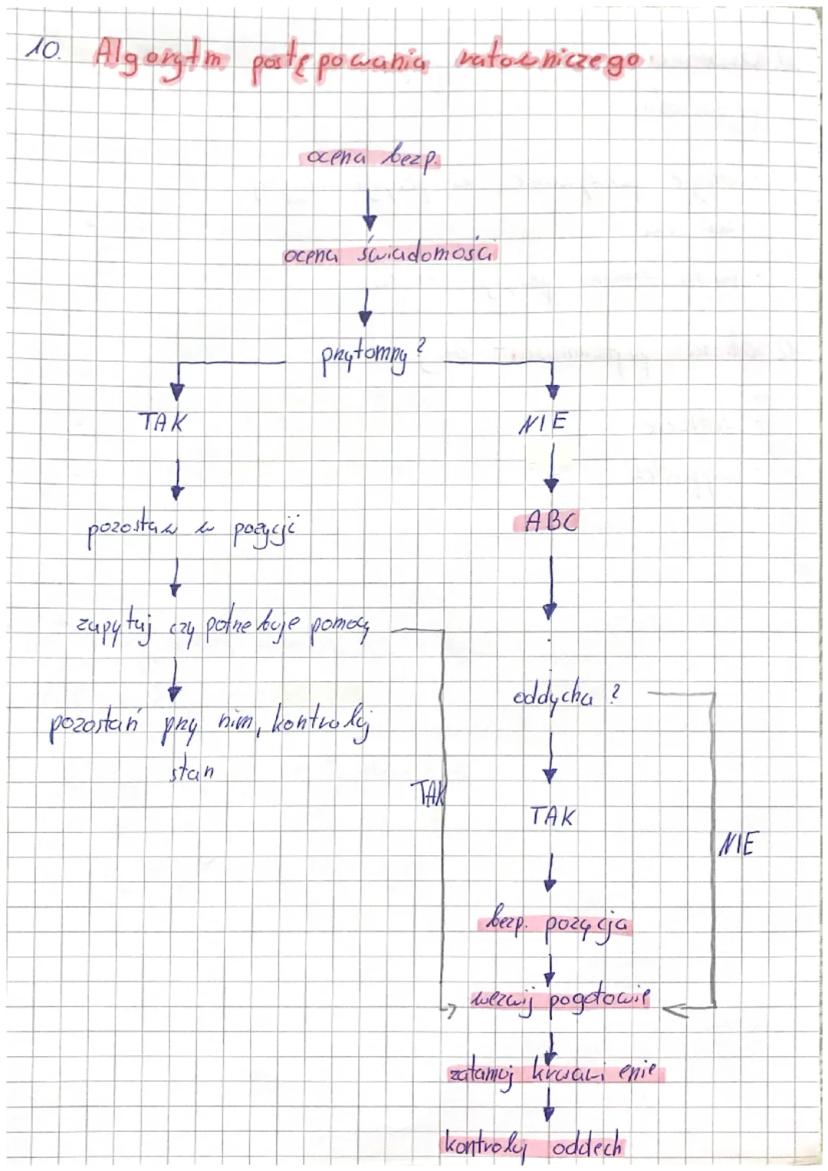 10. Algorytm postępowania ratowniczego
ocena bezp.
ocena świadomości
przytomny?
TAK
NIE
pozostaw w pozycji
ABC
zapytaj czy potrzebuje pomocy
oddycha?
pozostań przy nim, kontroluj
stan
TAK
TAK
NIE
bezp. pozycja
wezwij pogotowie
zatamuj krwawienie
kontroluj oddech